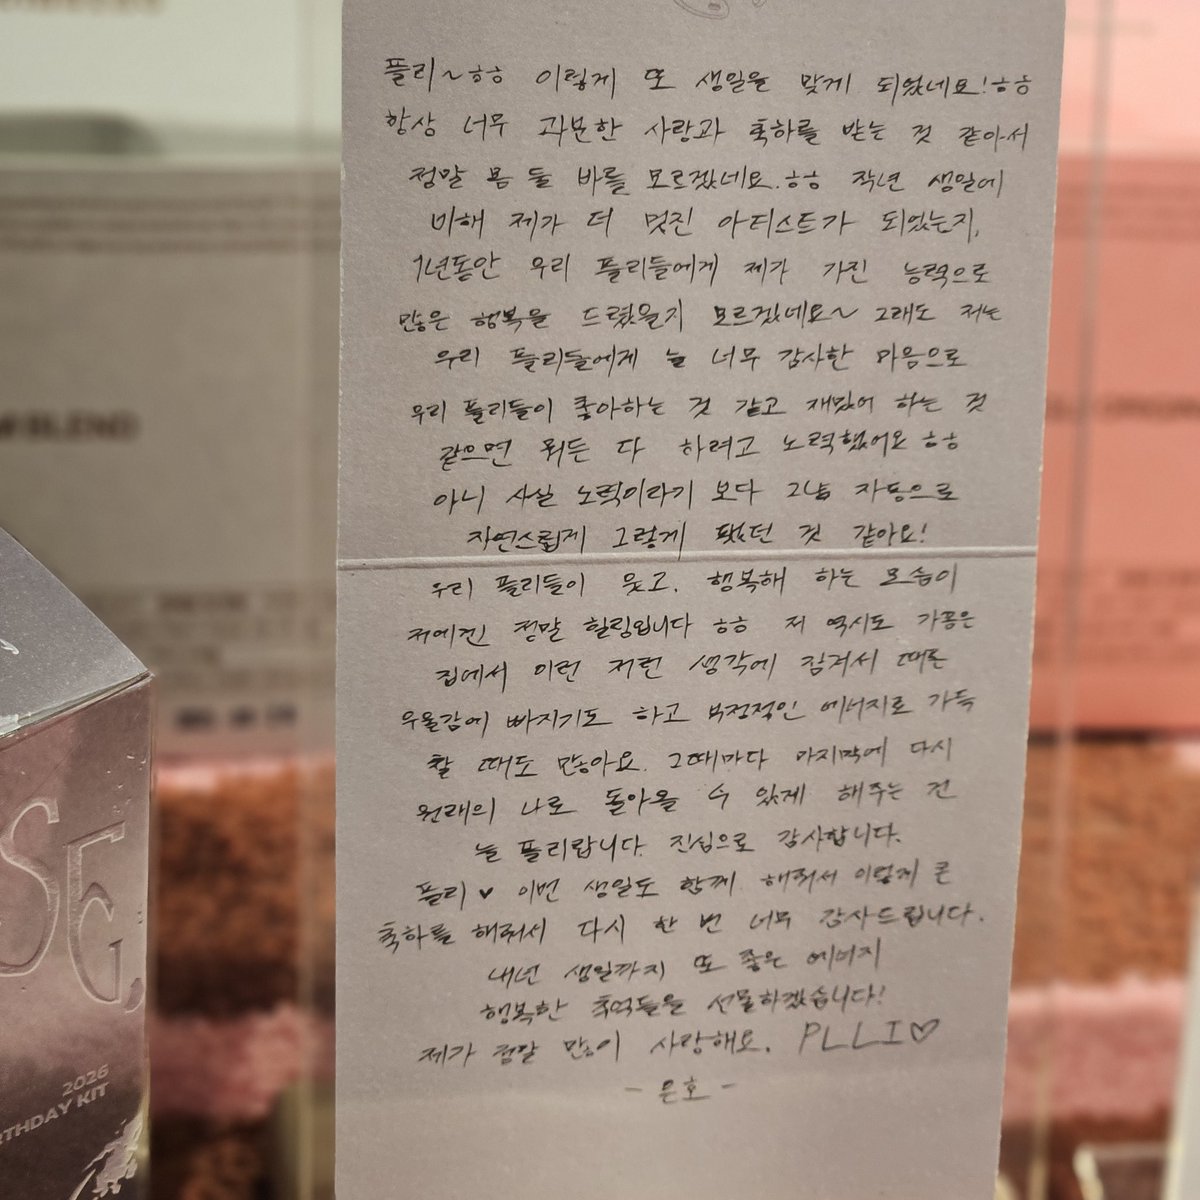 플리~ㅎㅎ 이렇게 또 생일을 맞게 되었네요!ㅎㅎ
항상 너무 과분한 사랑과 축하를 받는 것 같아서
정말 몸 둘 바를 모르겠네요.ㅎㅎ 작년 생일에
비해 제가 더 멋진 아티스트가 되었는지,
1년동안 우리 플리들에게 제가 가진 능력으로
많은 행복을 드렸을지 모르겠네요~ 그래도 저는
우리 플리들에게 늘 너무 감사한 마음으로
우리 플리들이 좋아하는 것 같고 재밌어 하는 것
같으면 뭐든 다 하려고 노력했어요 ㅎㅎ
아니 사실 노력이라기 보다 그냥 자동으로
자연스럽게 그렇게 됐던 것 같아요!
우리 플리들이 웃고, 행복해 하는 모습이
저에겐 정말 힐링입니다 ㅎㅎ 저 역시도 가끔은
집에서 이런 저런 생각에 잠겨서 때론
우울감에 빠지기도 하고 부정적인 에너지로 가득
찰 때도 많아요. 그때마다 마지막에 다시
원래의 나로 돌아올 수 있게 해주는 건
늘 플리랍니다. 진심으로 감사합니다.
플리♥ 이번 생일도 함께 해줘서 이렇게 큰
축하를 해줘서 다시 한 번 너무 감사드립니다.
내년 생일까지 또 좋은 에너지
행복한 추억들을 선물하겠습니다!
제가 정말 많이 사랑해요. PLLI♡
- 은호 -
2026
BIRTHDAY KIT
BLEND